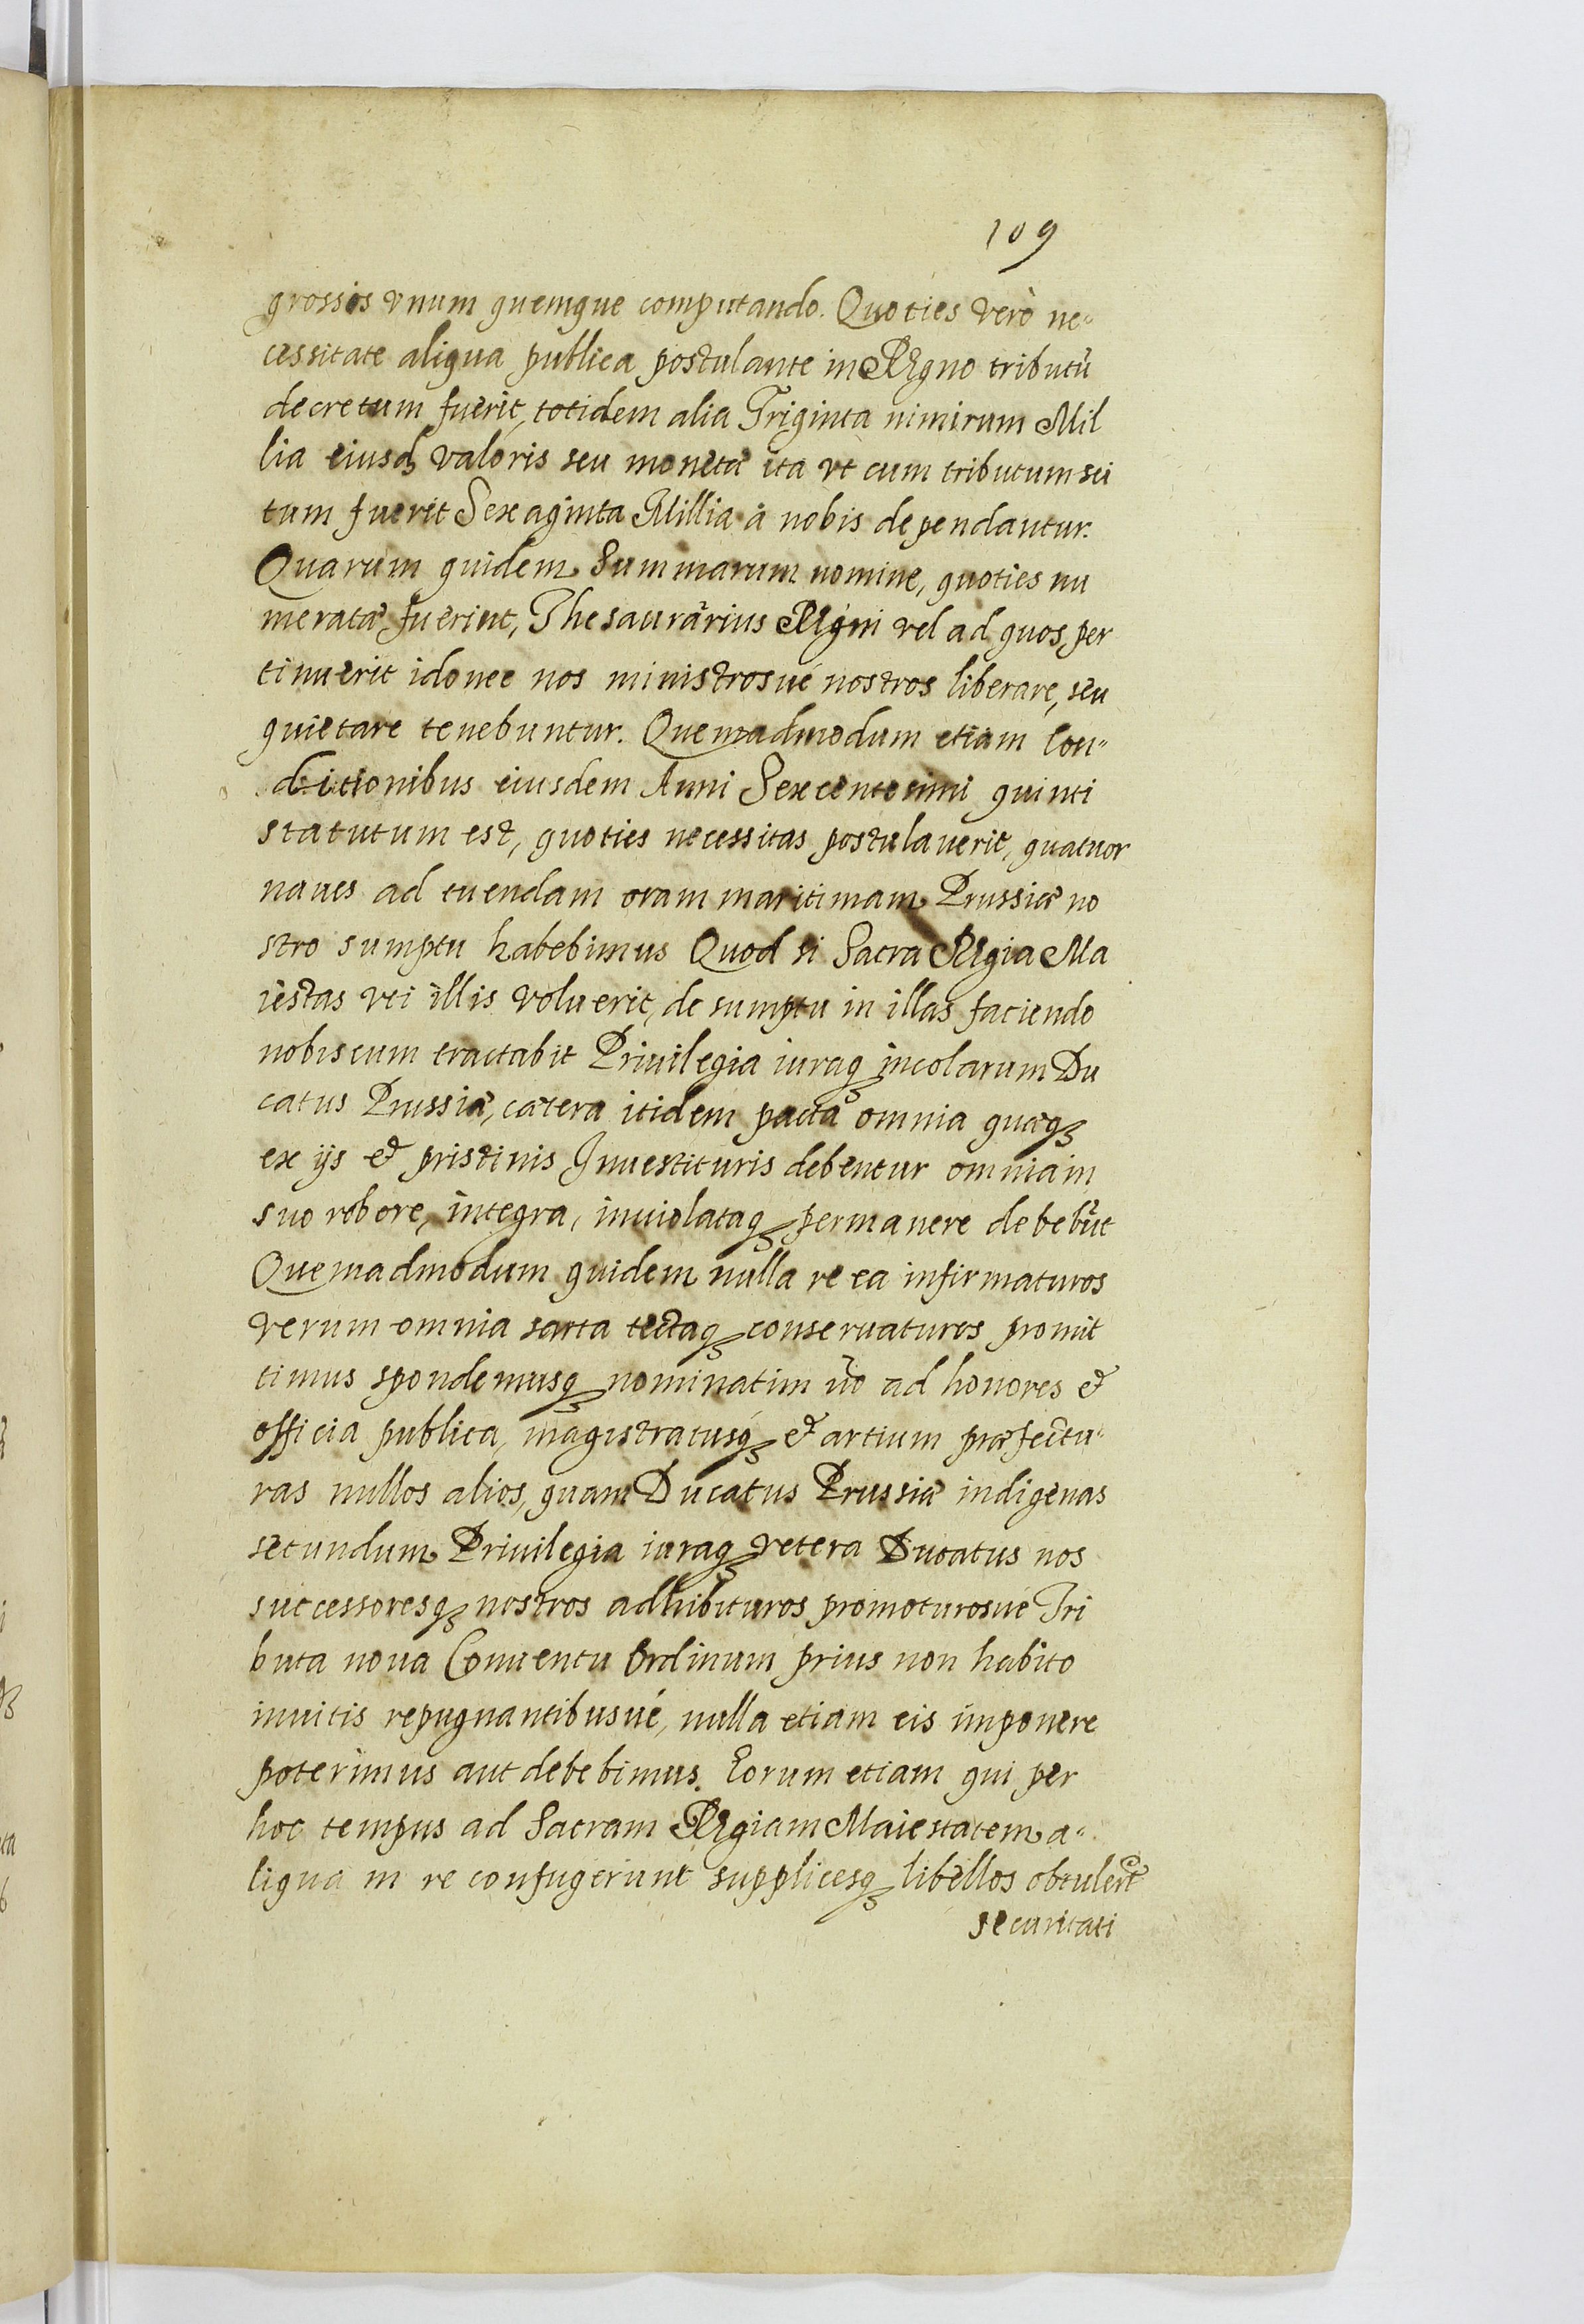 109
grossos vnum quemque computando. Quoties verò ne-
cessitate aliqua publica postulante in Regno tributũ
decretum fuerit, totidem alia Triginta nimirum Mil
lia eiusdꝫ valoris seu monetæ ita vt cum tributum sci
tum fuerit Sexaginta Millia à nobis dependantur.
Quarum quidem Summarum nomine, quoties nu
meratæ fuerint, Thesaurarius Regni vel ad quos per
tinuerit idonee nos ministrosué nostros liberare, seu
quietare tenebuntur. Quemadmodum etiam Con-
ditionibus eiusdem Anni Sexcentesimi quinti
statutum est, quoties necessitas postulauerit, quatuor
naues ad tuendam oram maritimam Prussiæ no
stro sumptu habebimus Quod si Sacra Regia Ma
iestas vti illis voluerit, de sumptu in illas faciendo
nobiscum tractabit Priuilegia iuraqꝫ incolarum Du
catus Prussiæ, cætera itidem pacta omnia quæqꝫ
ex ijs et pristinis Inuestituris debentur omnia in
suo robore, integra, inuiolataqꝫ permanere debebũt
Quemadmodum quidem nulla re ea infirmaturos
verum omnia sarta tectaqꝫ conseruaturos promit
timus spondemusqꝫ nominatim ũo ad honores et
officia publica, magistratusqꝫ et artium præfectu-
ras nullos alios, quam Ducatus Prussiæ indigenas
secundum Priuilegia iuraqꝫ vetera Ducatus nos
successoresqꝫ nostros adhibituros promoturosué Tri
buta noua Conuentu Ordinum prius non habito
inuitis repugnantibusué, nulla etiam eis imponere
poterimus aut debebimus. Eorum etiam qui per
hoc tempus ad Sacram Regiam Maiestatem a-
liqua in re confugerunt supplicesqꝫ libellos obtulert̃
securitati